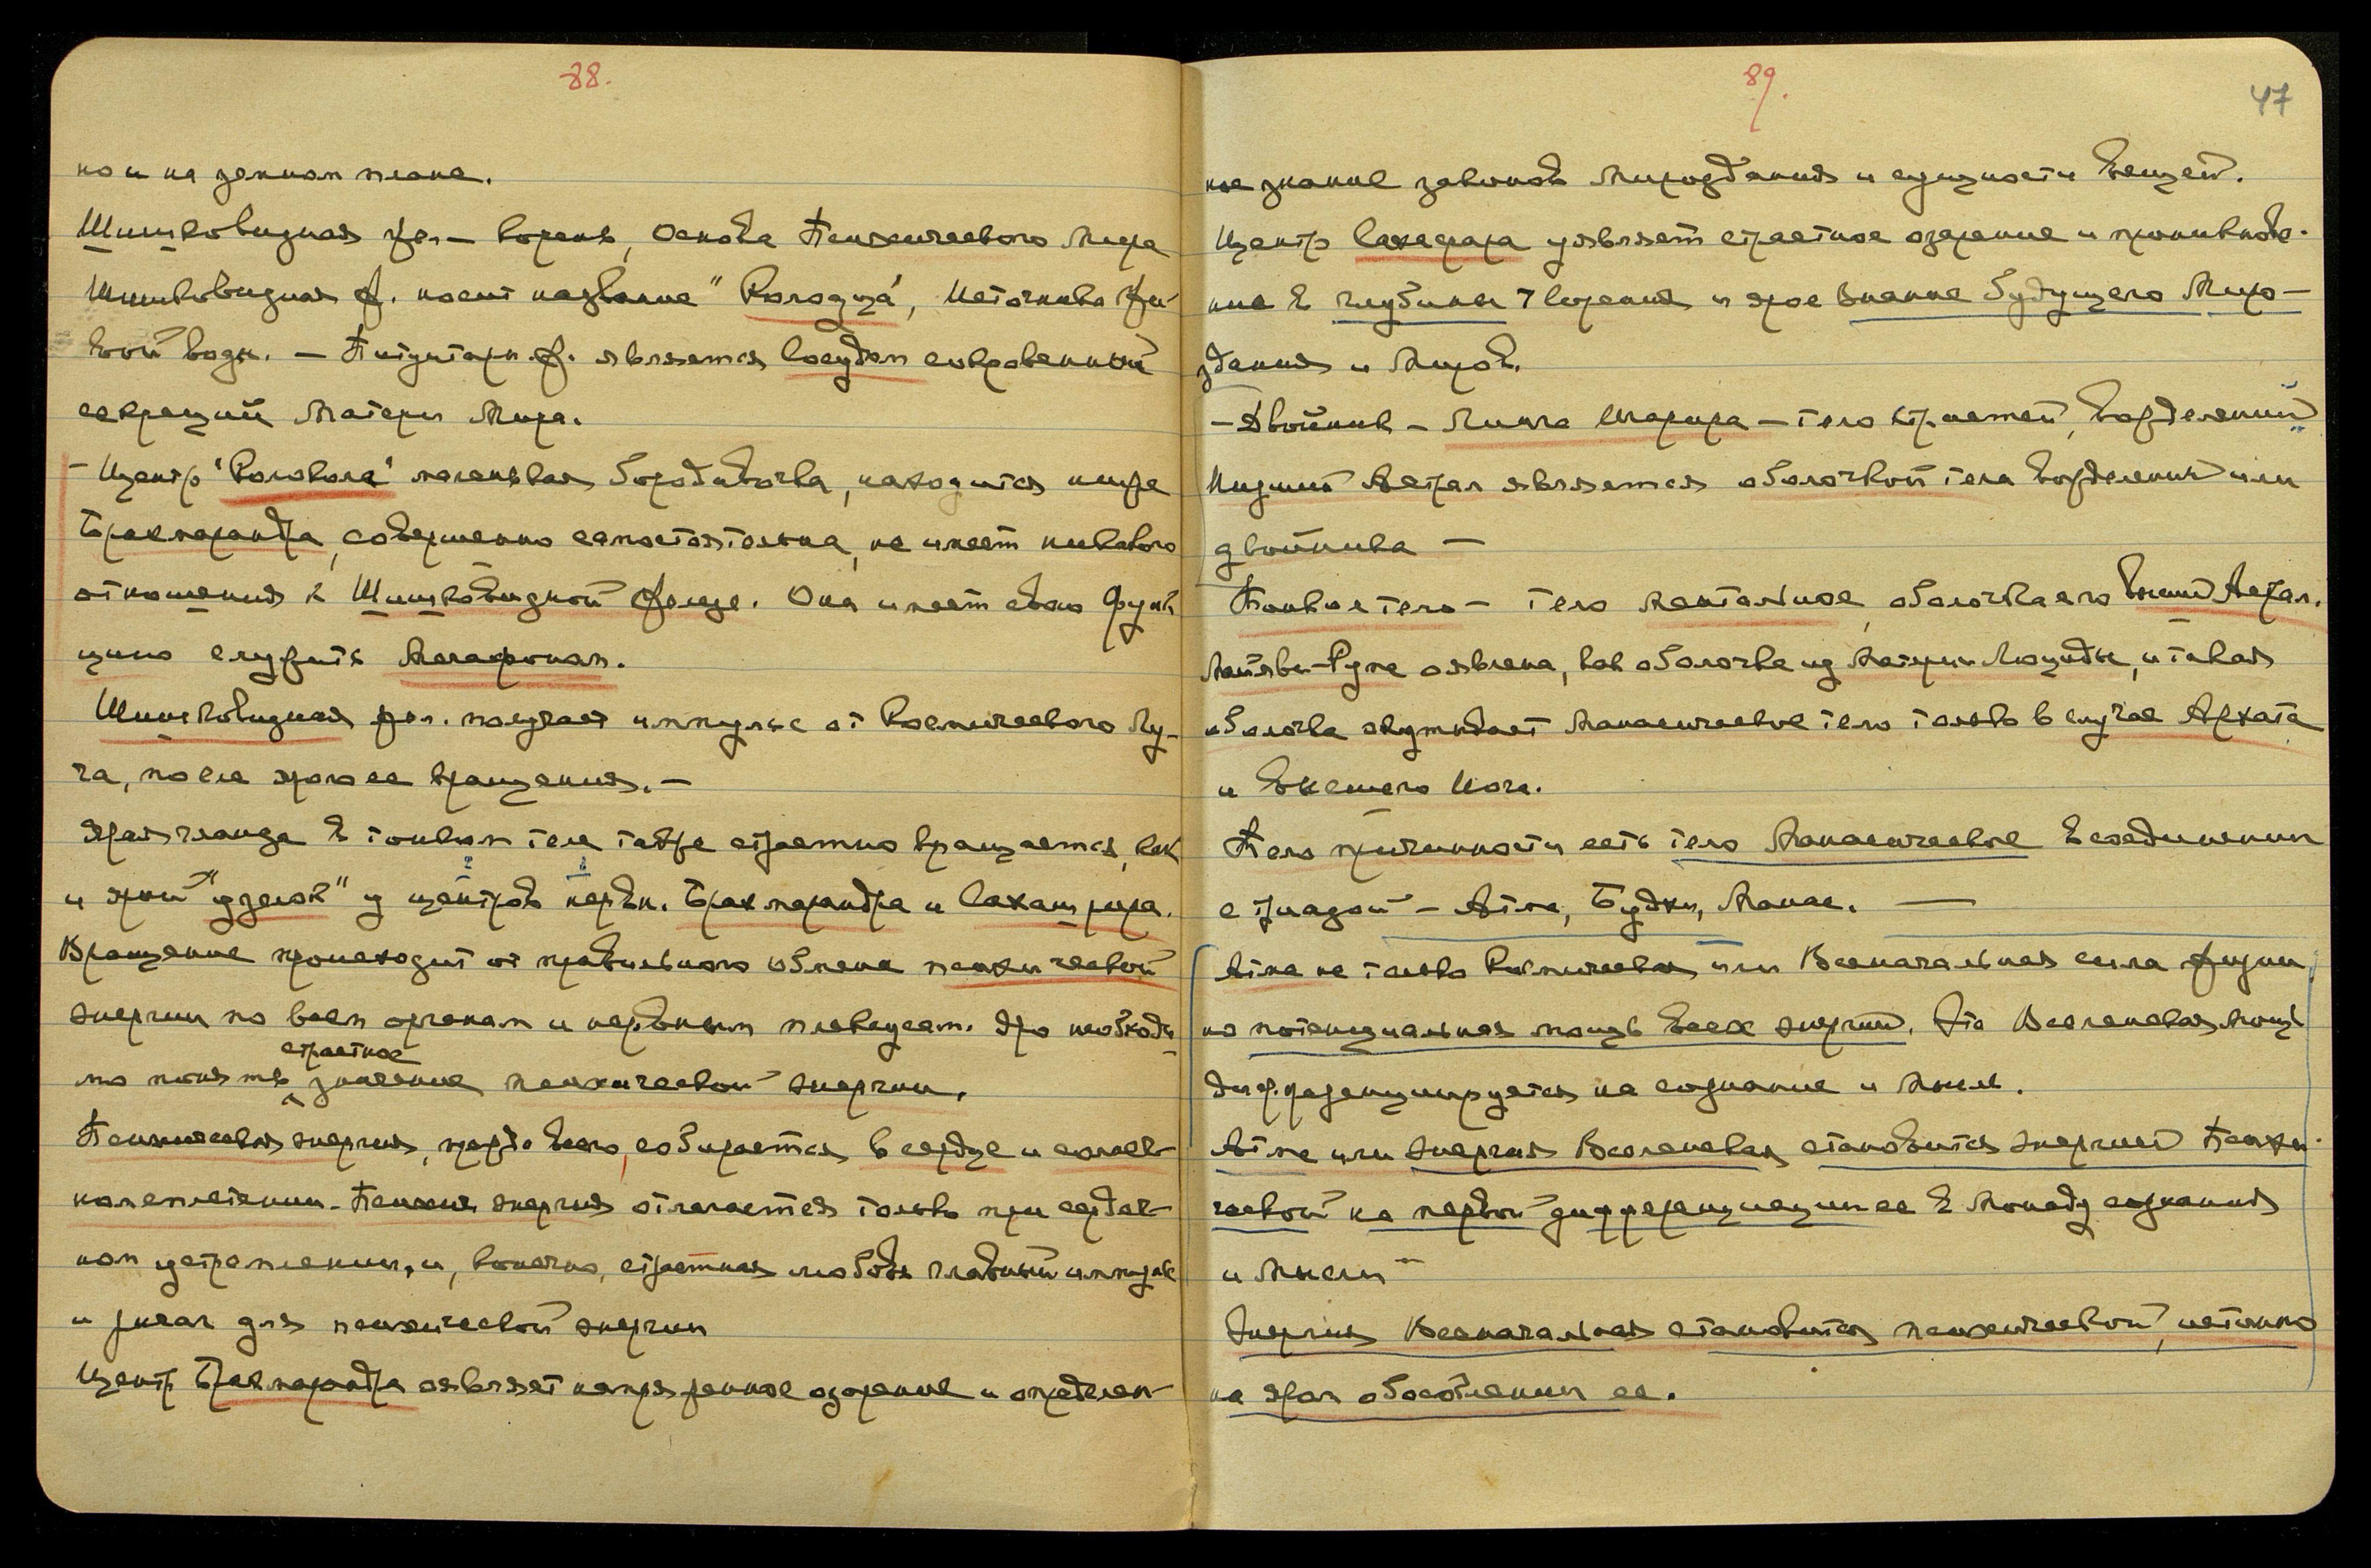 88.
но и на земном плане.
Шишковидная жел.— корень, Основа Психического Мира
Шишковидная ж. носит название "Колодца", Источника Жи-
вой воды. — Питуитарн. ж. является Сосудом сокровенных
секреций Матери Мира.
— Центр "Колокола" маленькая бородавочка, находится ниже
Брахмарандра, совершенно самостоятельна, не имеет никакого
отношения к Шишковидной железе. Она имеет свою функ-
цию служить Мегафоном.
Шишковидная жел. получает импульс от Космического Лу-
ча, после ярого ее вращения. —
Ярая гланда в тонком теле также страстно вращается, как
и ярый "узелок" у центров нервн. Брахмарандра и Сахашрара.
Вращение происходит от правильного обмена психической
энергии по всем органам и нервным плексусам. Яро необходи-
страстное
мо понять значение психической энергии.
Психическая энергия, прежде всего, собирается в сердце и солнеч-
ном сплетении. Психич. энергия отлагается только при сердеч-
ном устремлении, и, конечно, страстная любовь главный импульс
и рычаг для психической энергии
Центр Брахмарандра являет напряженное озарение и определен-
89.
47
ное знание законов Мироздания и сущности вещей.
Центр Сахасрара уявляет страстное озарение и проникнове-
ние в глубины творения и ярое знание будущего Миро-
здания и Миров.
— Двойник — Линга Шарира — тело страстей, вожделений
Низший Астрал является оболочкой тела вожделений или
двойника —
Тонкое тело — тело ментальное, оболочка его высший Астрал.
Матэви-Рупа оявлена, как оболочка из Материи Люциды, и такая
оболочка окутывает Манасическое тело только в случае Архата
и Высшего Йога.
Тело причинности есть тело Манасическое в соединении
с триадой — Атма, Будхи, Манас. —
Атма не только Космическая или Всеначальная сила жизни,
но потенциальная мощь всех энергий. Эта Вселенская Мощь
дифференцируется на сознание и мысль.
Атма или энергия Вселенская становится энергией Психи-
ческой на первой дифференциации ее в Монаду сознания
и Мысли —
Энергия Всеначальная становится психической, истинно
на яром обособлении ее.